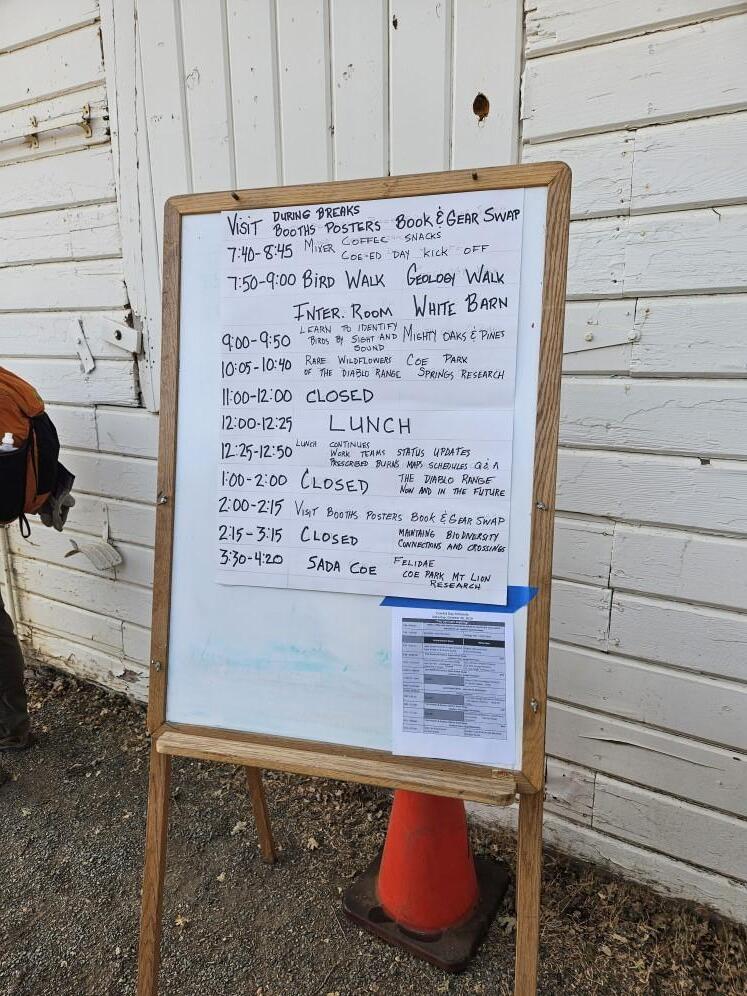 VISIT DURING BREAKS
BOOTHS POSTERS BOOK & GEAR SWAP
7:40-8:45 MIXER COFFEE SNACKS
COE-ED DAY KICK OFF
7:50-9:00 BIRD WALK GEOLOGY WALK
INTER. ROOM WHITE BARN
9:00-9:50 LEARN TO IDENTIFY BIRDS BY SIGHT AND SOUND MIGHTY OAKS & PINES
10:05-10:40 RARE WILDFLOWERS OF THE DIABLO RANGE COE PARK SPRINGS RESEARCH
11:00-12:00 CLOSED
12:00-12:25 LUNCH
12:25-12:50 LUNCH CONTINUES
WORK TEAMS STATUS UPDATES
PRESCRIBED BURNS MAPS SCHEDULES Q & A
1:00-2:00 CLOSED THE DIABLO RANGE NOW AND IN THE FUTURE
2:00-2:15 VISIT BOOTHS POSTERS BOOK & GEAR SWAP
2:15-3:15 CLOSED MAINTAING BIODIVERSITY CONNECTIONS AND CROSSINGS
3:30-4:20 SADA COE FELIDAE COE PARK MT LION RESEARCH